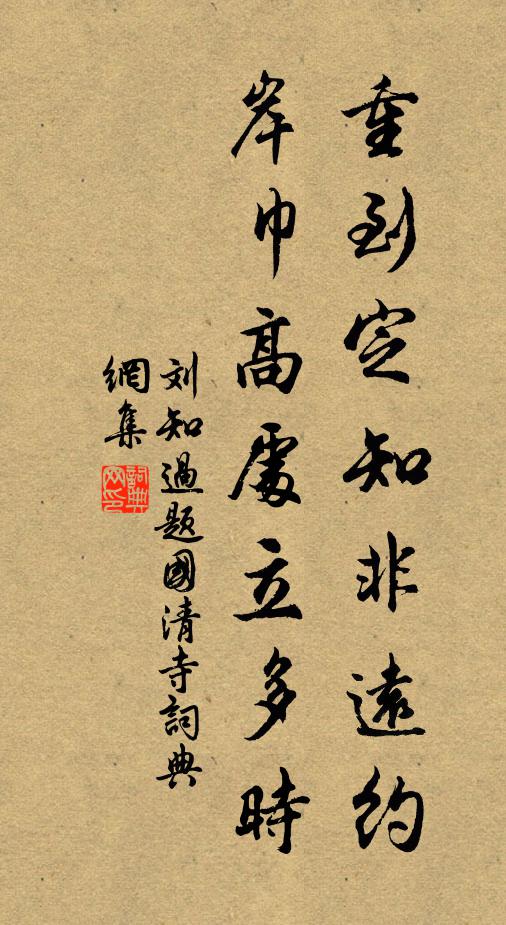 重到定知非遠約
岸巾高處立多時
刘知過題國清寺詞典
網集
詞典
网印